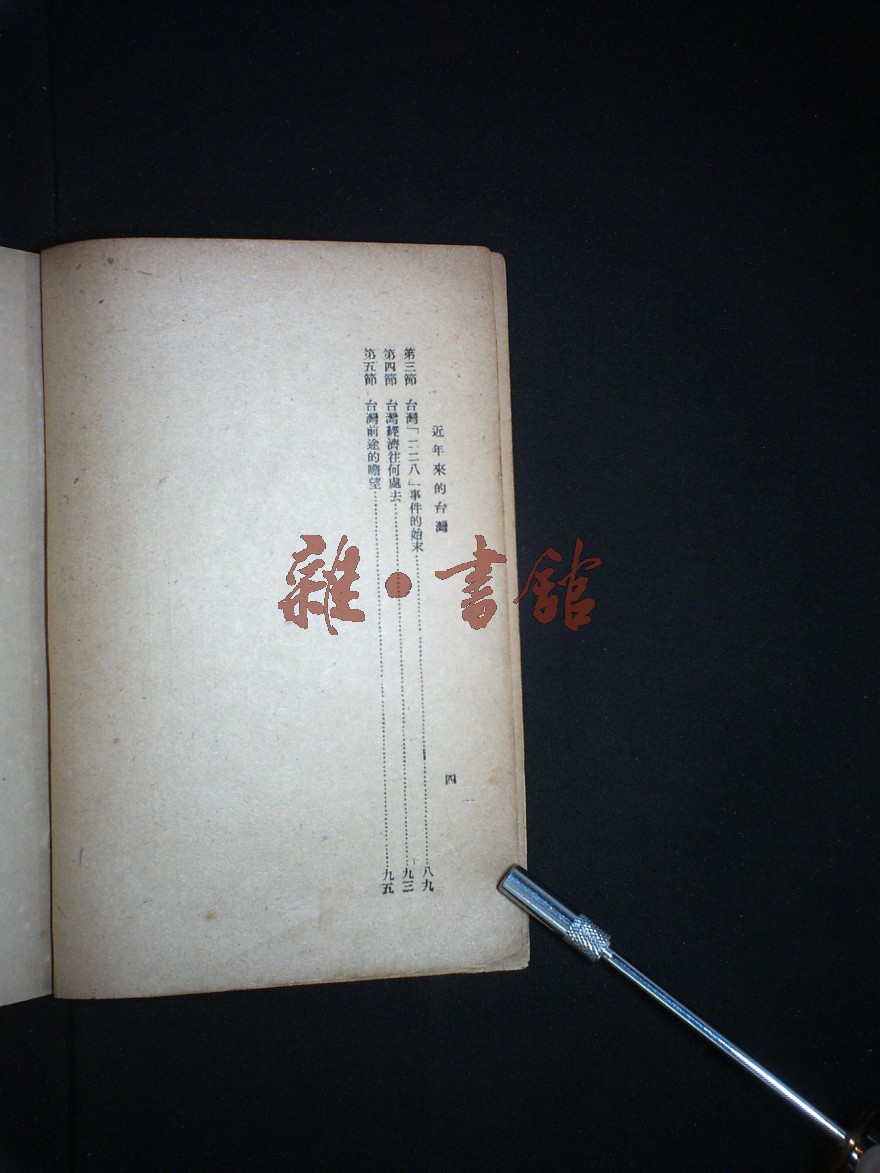 近年來的台灣
四
第三節 台灣「二二八」事件的始末……八九
第四節 台灣經濟往何處去……九三
第五節 台灣前途的瞻望……九五
雜·書館